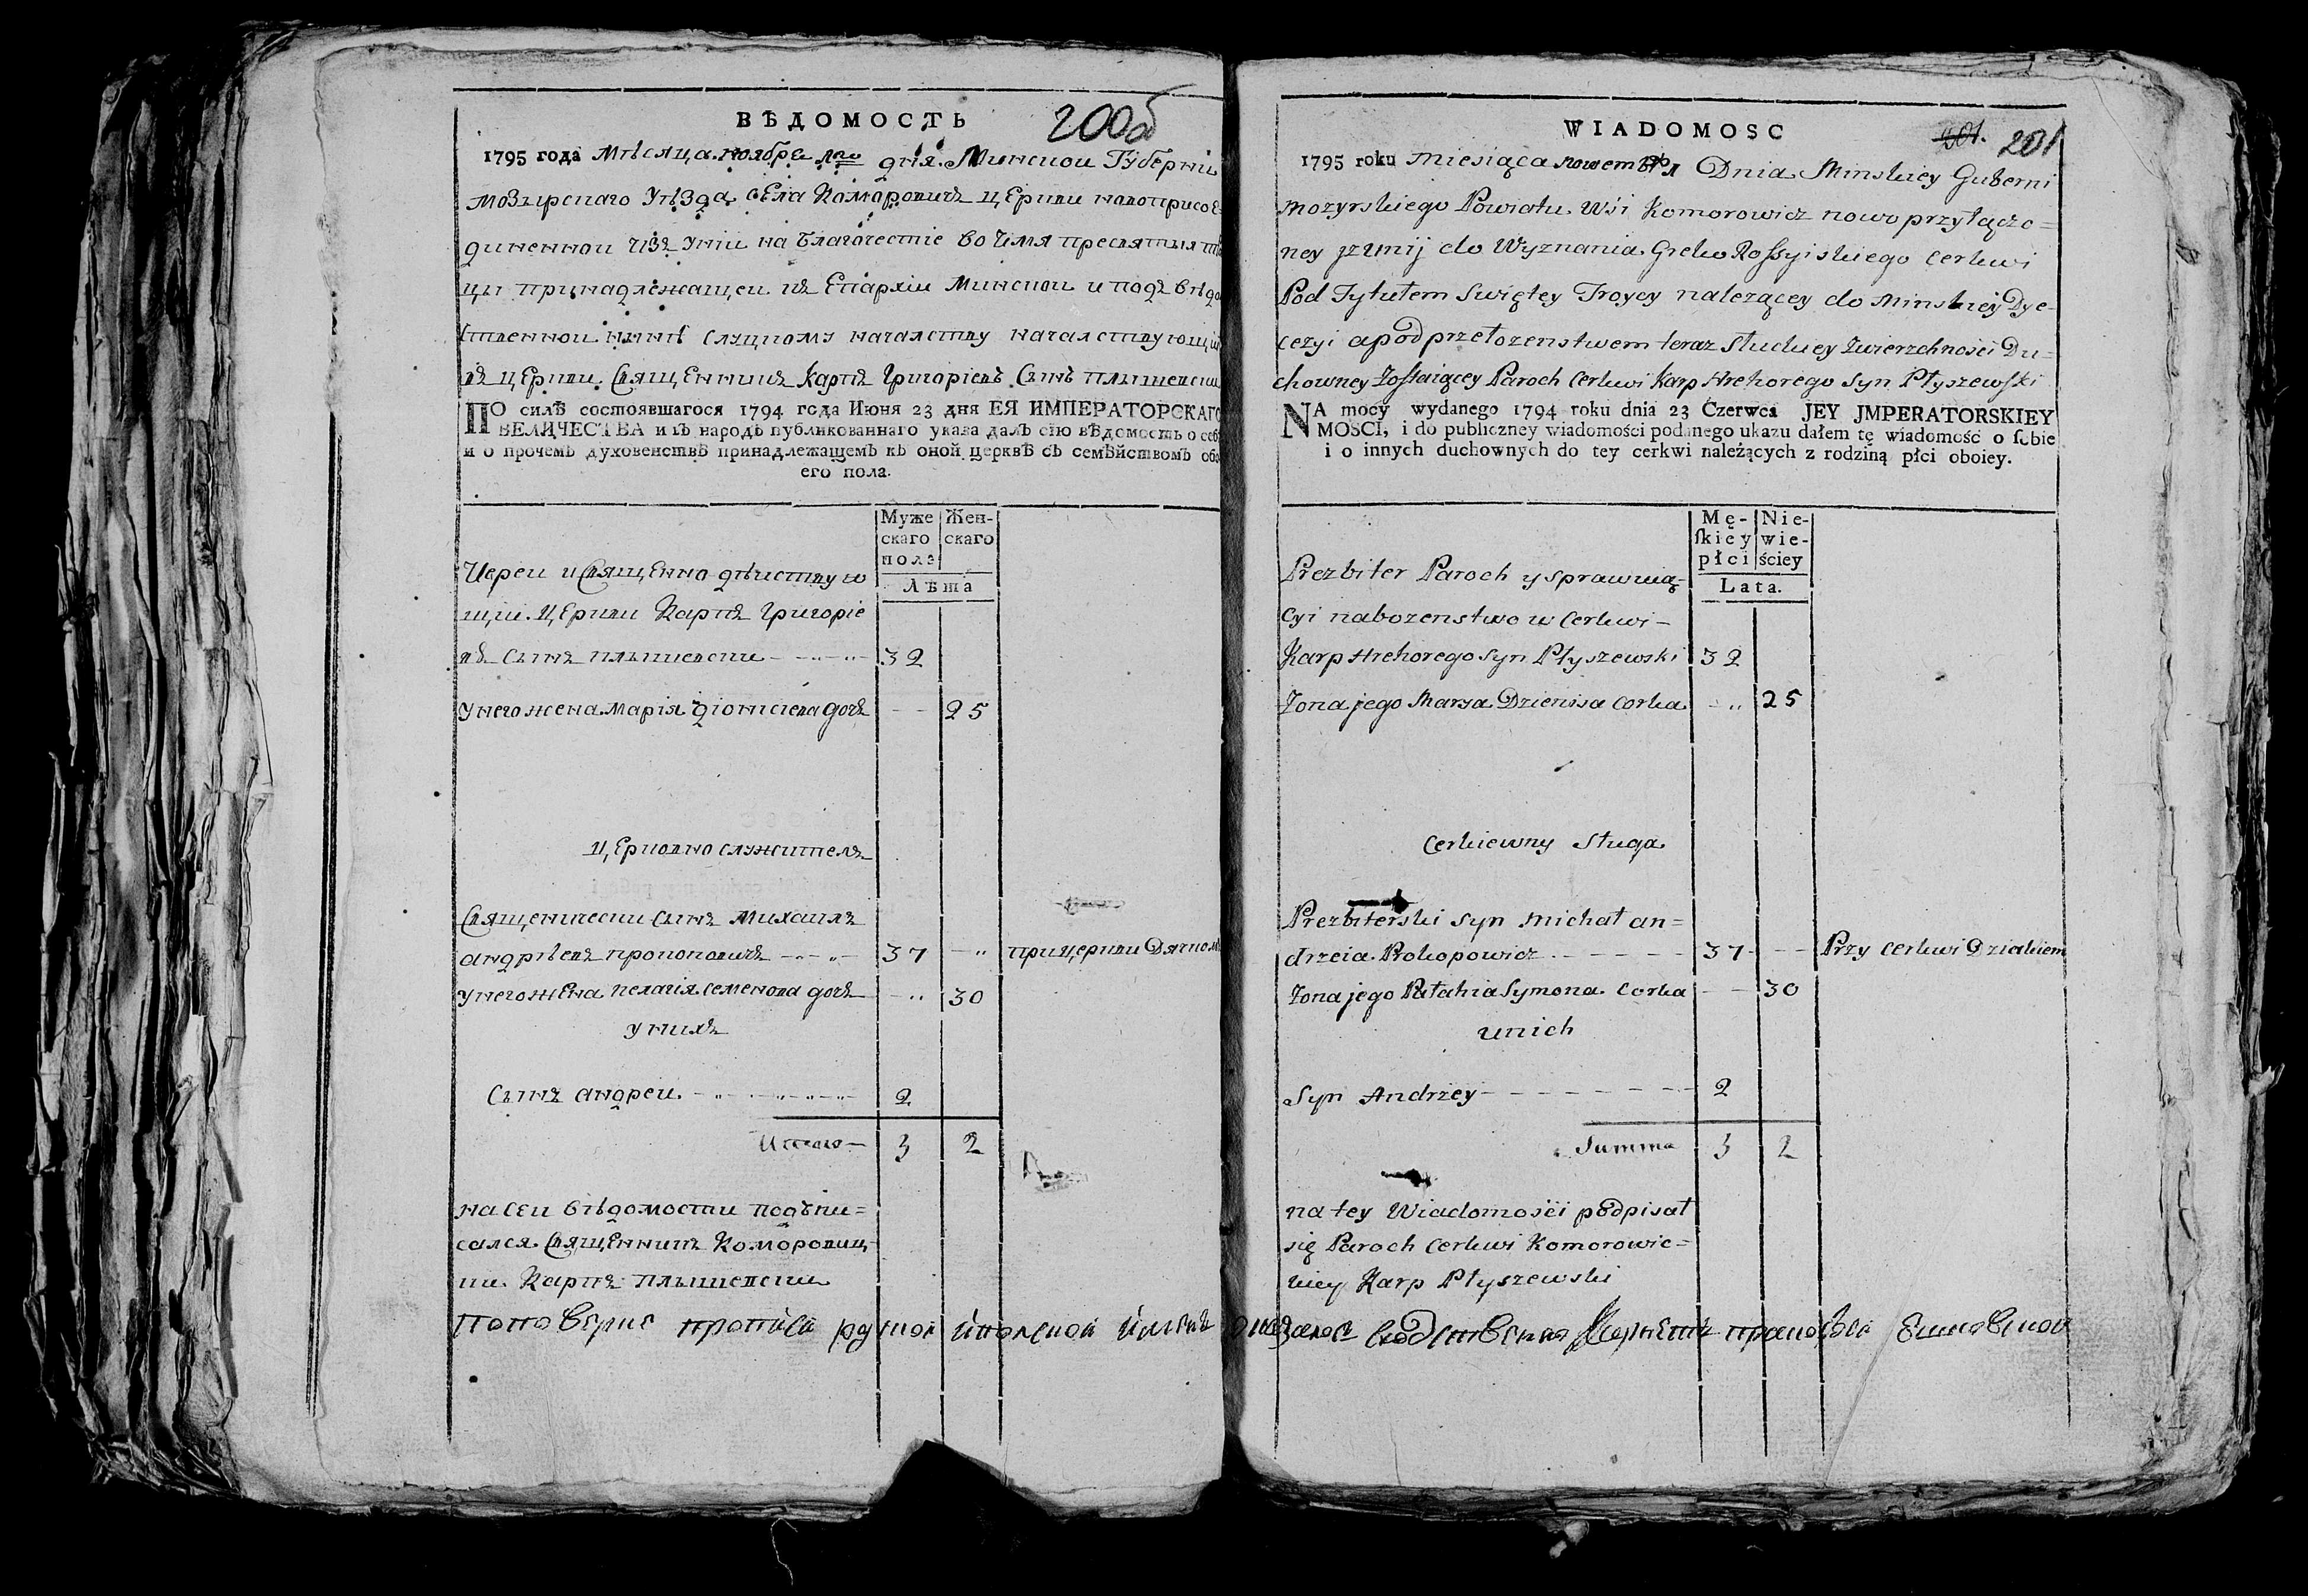 ВѢДОМОСТЬ
200об
1795 года Мѣсяца ноября дня Минской Губерніи
мозырскаго Уѣзда села Коморовичъ церкви новоприсое
диненной изъ уніи на благочестіе во имя пресвятыя тро
цы принадлежащей къ Епархіи Минской и подъ вѣдо
ственной нынѣ слуцкому началству началствующій
въ церкви Священникъ Карпъ Григорiевъ Сынъ плышевски
ПО силѣ состоявшагося 1794 года Июня 23 дня ЕЯ ИМПЕРАТОРСКАГО
ВЕЛИЧЕСТВА и въ народъ публикованнаго указа далъ сію вѣдомость о себѣ
и о прочемъ духовенствѣ принадлежащемъ къ оной церквѣ съ семѣйствомъ обо
его пола.
Муже Жен-
скаго скаго
пола
Лѣта
Иереи и Священно дѣиству ю
щіи Церкви Карпъ Григоріе
въ Сынъ плышевски 32
У него жена Марія діонисіева дочъ 25
Церковно служителъ
Священически сынъ Михаилъ
андрѣевъ прокоповичъ 37 при церкви Дячкомъ
У него жена пелагія семенова дочъ 30
У нихъ
Сынъ андреи 2
Итого 3 2
на сеи вѣдомости подъпи=
сался Священникъ Коморовиц
ки Карпъ плышевски
WIADOMOSC
201. 201
1795 roku miesiąca nowembra Dnia Minskiey Guberni
mozyrskiego Powiatu Wśi Komorowicz nowo przyłączo=
ney z unij do Wyznania Greko Rossyiskiego Cerkwi
Pod Tytułem Swiętey Troycy należącey do Minskiey Dye-
cezyi a pod przełozenstwem teraz Słuckiey Zwierzchności Du=
chowney Zostaiącey Paroch Cerkwi Karp Hrehorego Syn Płyszewski
NA mocy wydanego 1794 roku dnia 23 Czerwca JEY JMPERATORSKIEY
MOSCI, i do publiczney wiadomości podanego ukazu dałem tę wiadomość o sobie
i o innych duchownych do tey cerkwi należących z rodziną płci oboiey.
Mę- Nie-
skiey wie-
płci ściey
Lata.
Prezbiter Paroch y sprawuią-
cyi nabozenstwo w Cerkwi -
Karp Hrehorego syn Płyszewski 32
Zona jego Marya Dzienisa Corka 25
Cerkiewny Sługa
Prezbiterski Syn Michał an=
drzeia Prokopowicz 37 Przy Cerkwi Dziakiem
Zona jego Pełahia Symona Corka 30
unich
Syn Andrzey 2
Summa 3 2
na tey Wiadomości podpisał
się Paroch Cerkwi Komorowic=
kiey Karp Płyszewski